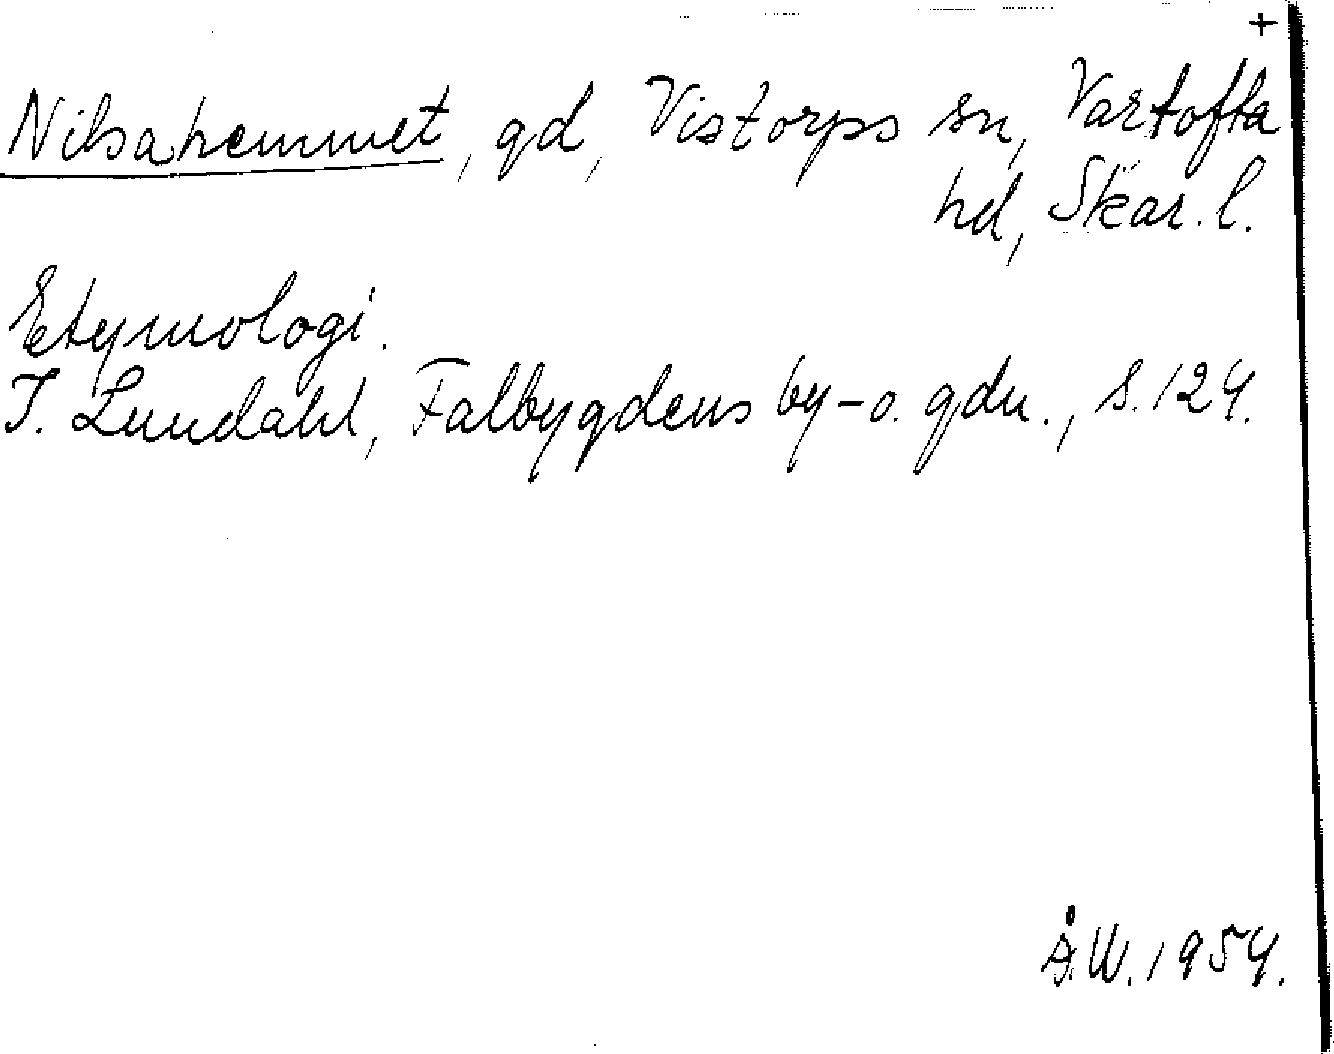 +
Nilsahemmet, gd, Vistorps sn, Vartofta
hd, Skar. l.
Etymologi.
I. Lundahl, Falbygdens by- o. gdn., s. 124.
Å.W. 1954.